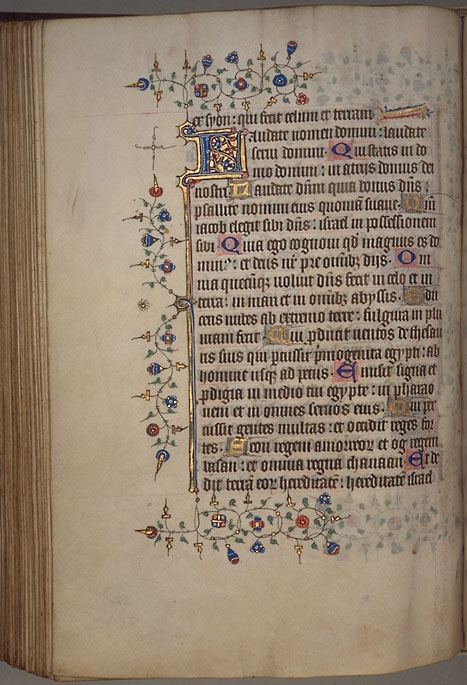 ex syon: qui fecit celum et terram
Laudate nomen domini: laudate
serui domini. Qui statis in do
mo domini: in atrijs domus dei
nostri. Laudate dñm quia bonus dñs:
psallite nomini eius quoniam suaue. Qm̄
iacob elegit sibi dñs: israel in possessionem
sibi. Quia ego cognoui qd̄ magnus est do
minꝰ: et deus nr̄ pre omībꝫ dijs. Om
nia quecūqꝫ uoluit dñs fecit in celo et in
terra: in mari et in omībꝫ abyssis. Edu
cens nubes ab extremo terre: fulgura in plu
uiam fecit. Qui ꝓducit uentos de thesau
ris suis qui percussit p̄mogenita egypti: ab
homine usqꝫ ad pecus. Emisit signa et
ꝓdigia in medio tui egypte: in pharao
nem et in omnes seruos eius. Qui per
cussit gentes multas: et occidit reges for
tes. Seon regem amorreor̄ et og regem
basan: et omnia regna chanaan. Et de
dit terrā eor̄ hereditatē: hereditatē israel